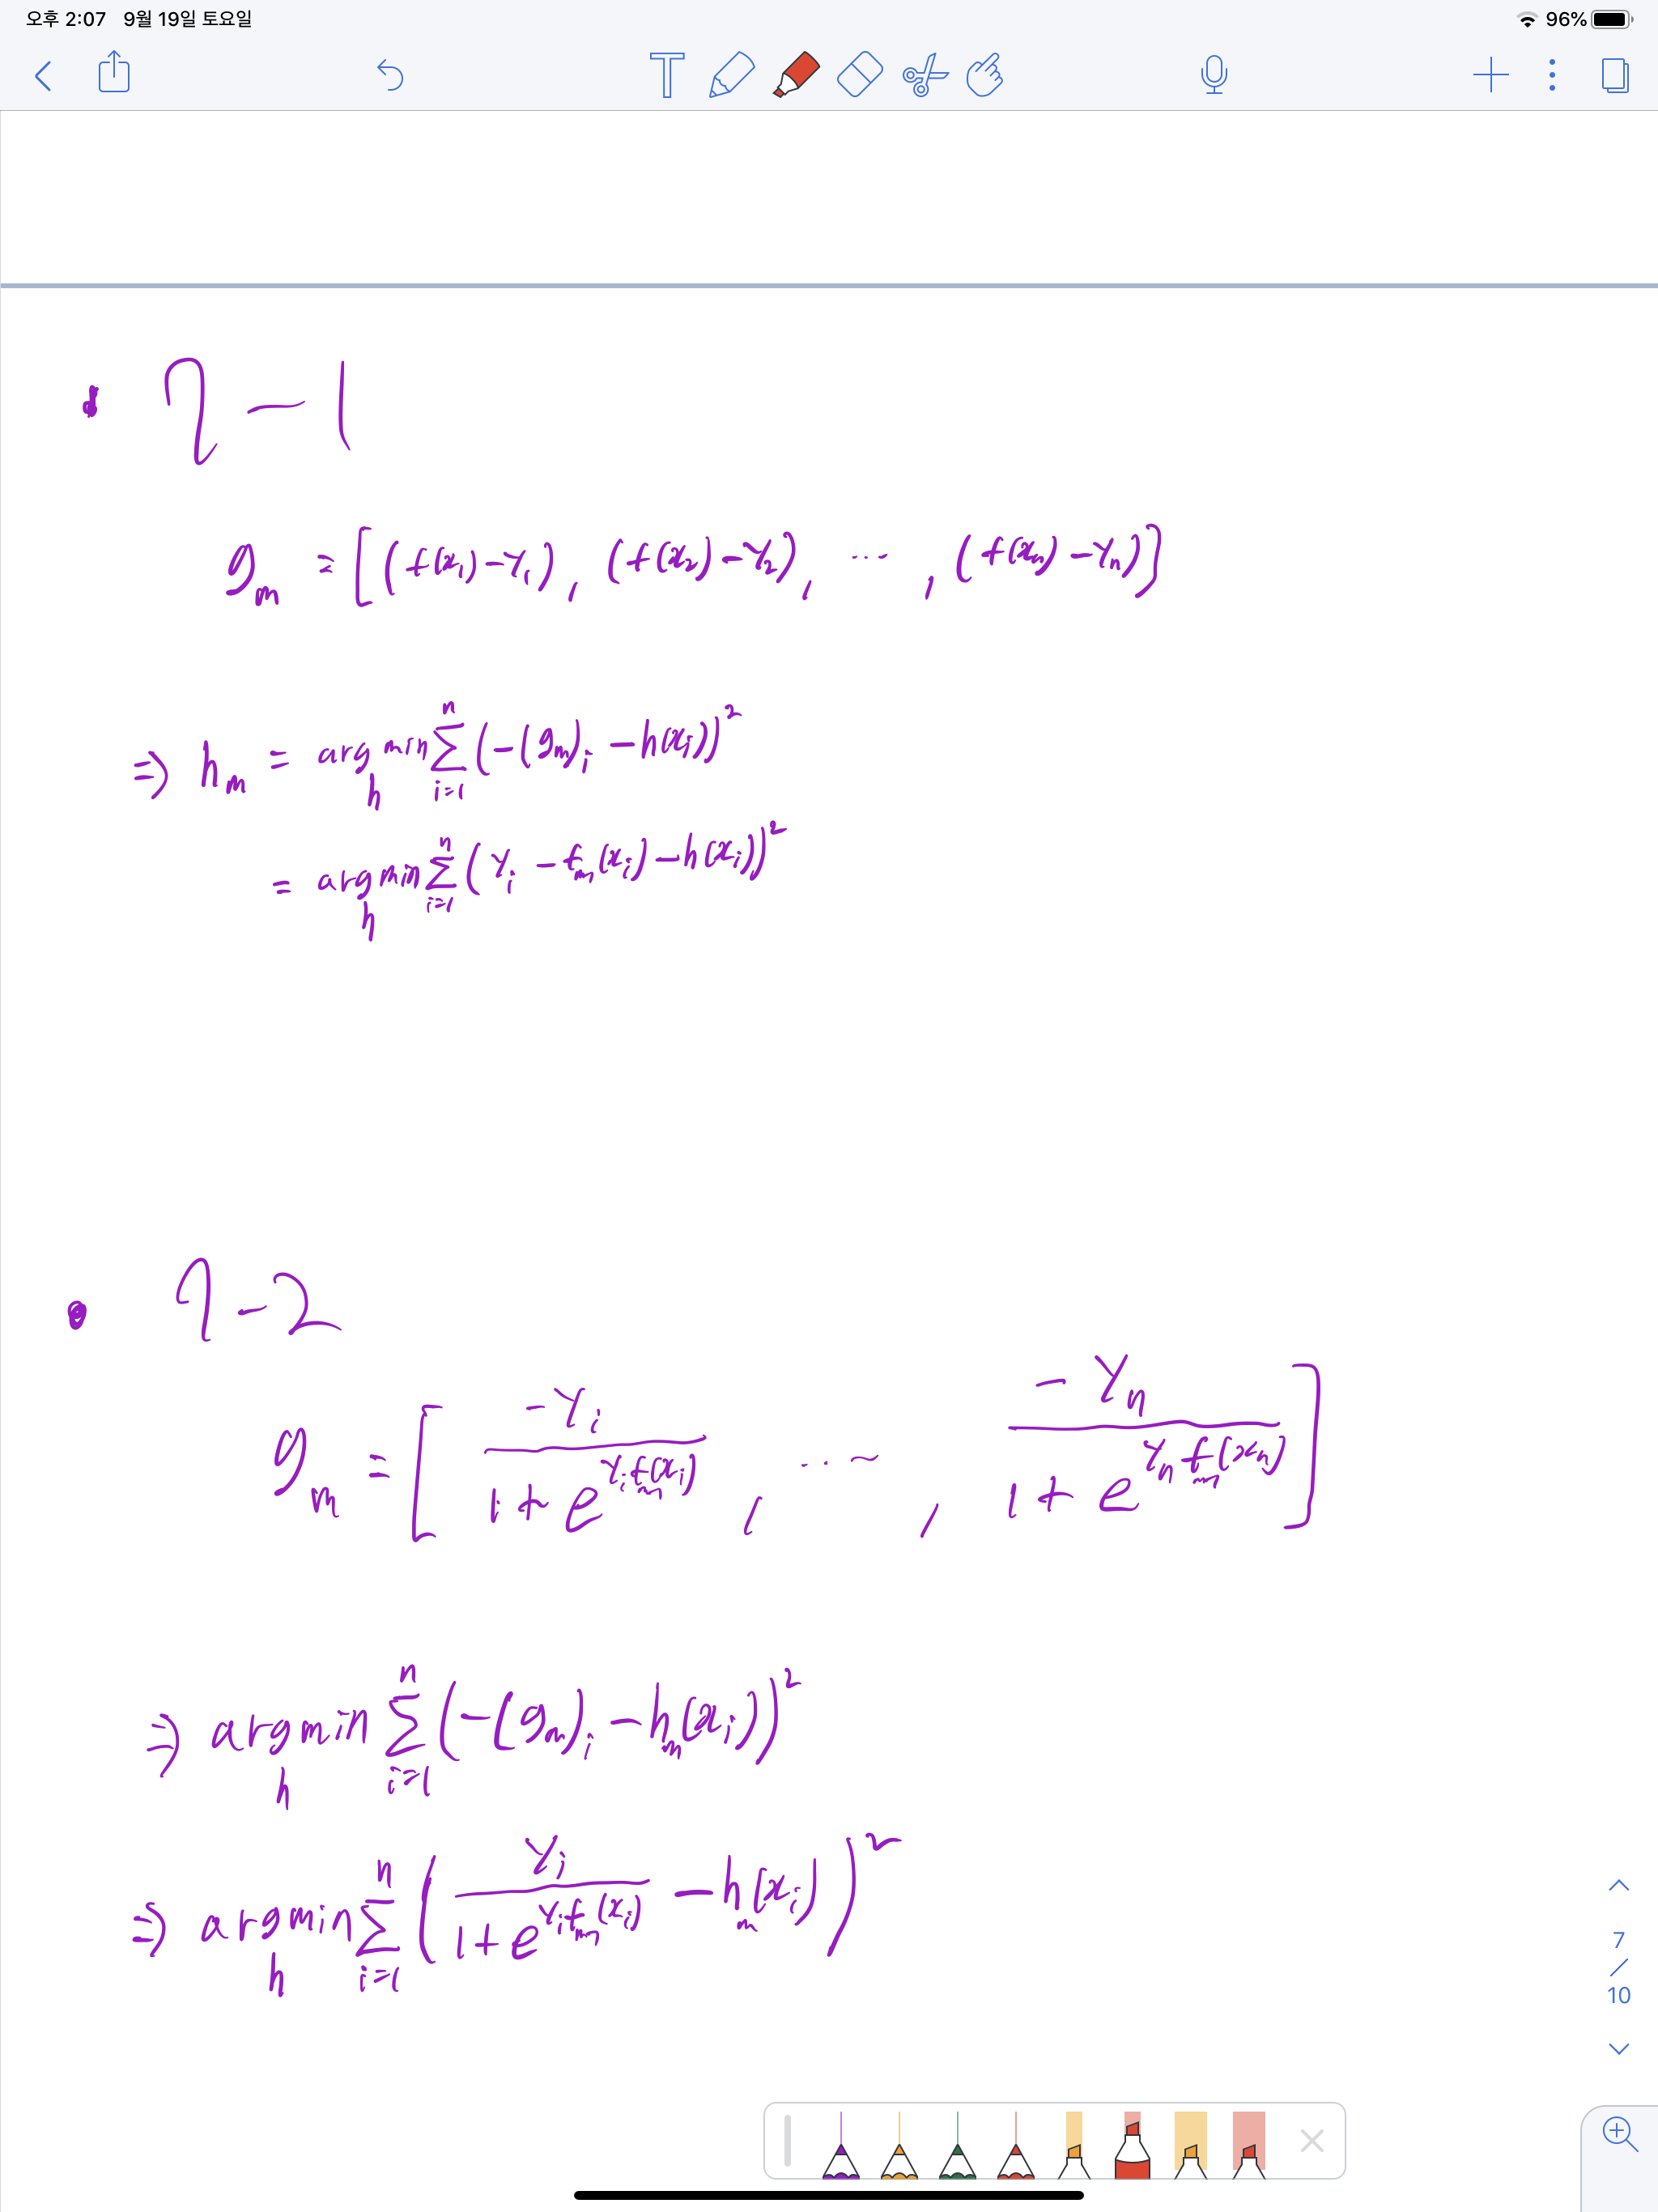 오후 2:07 9월 19일 토요일 96%
T
• 7 – 1
g_m = [(f(x_1) – Y_1), (f(x_2) – Y_2), ..., (f(x_n) – Y_n)]
⇒ h_m = arg min_h Σ_{i=1}^{n} (–(g_m)_i – h(x_i))^2
= arg min_h Σ_{i=1}^{n} (Y_i – f_m(x_i) – h(x_i))^2
• 7 – 2
g_m = [ –Y_i / (1 + e^{Y_i f_{m-1}(x_i)}), ..., –Y_n / (1 + e^{Y_n f_{m-1}(x_n)}) ]
⇒ arg min_h Σ_{i=1}^{n} (–(g_m)_i – h_m(x_i))^2
⇒ arg min_h Σ_{i=1}^{n} ( Y_i / (1 + e^{Y_i f_{m-1}(x_i)}) – h_m(x_i) )^2
7
/
10